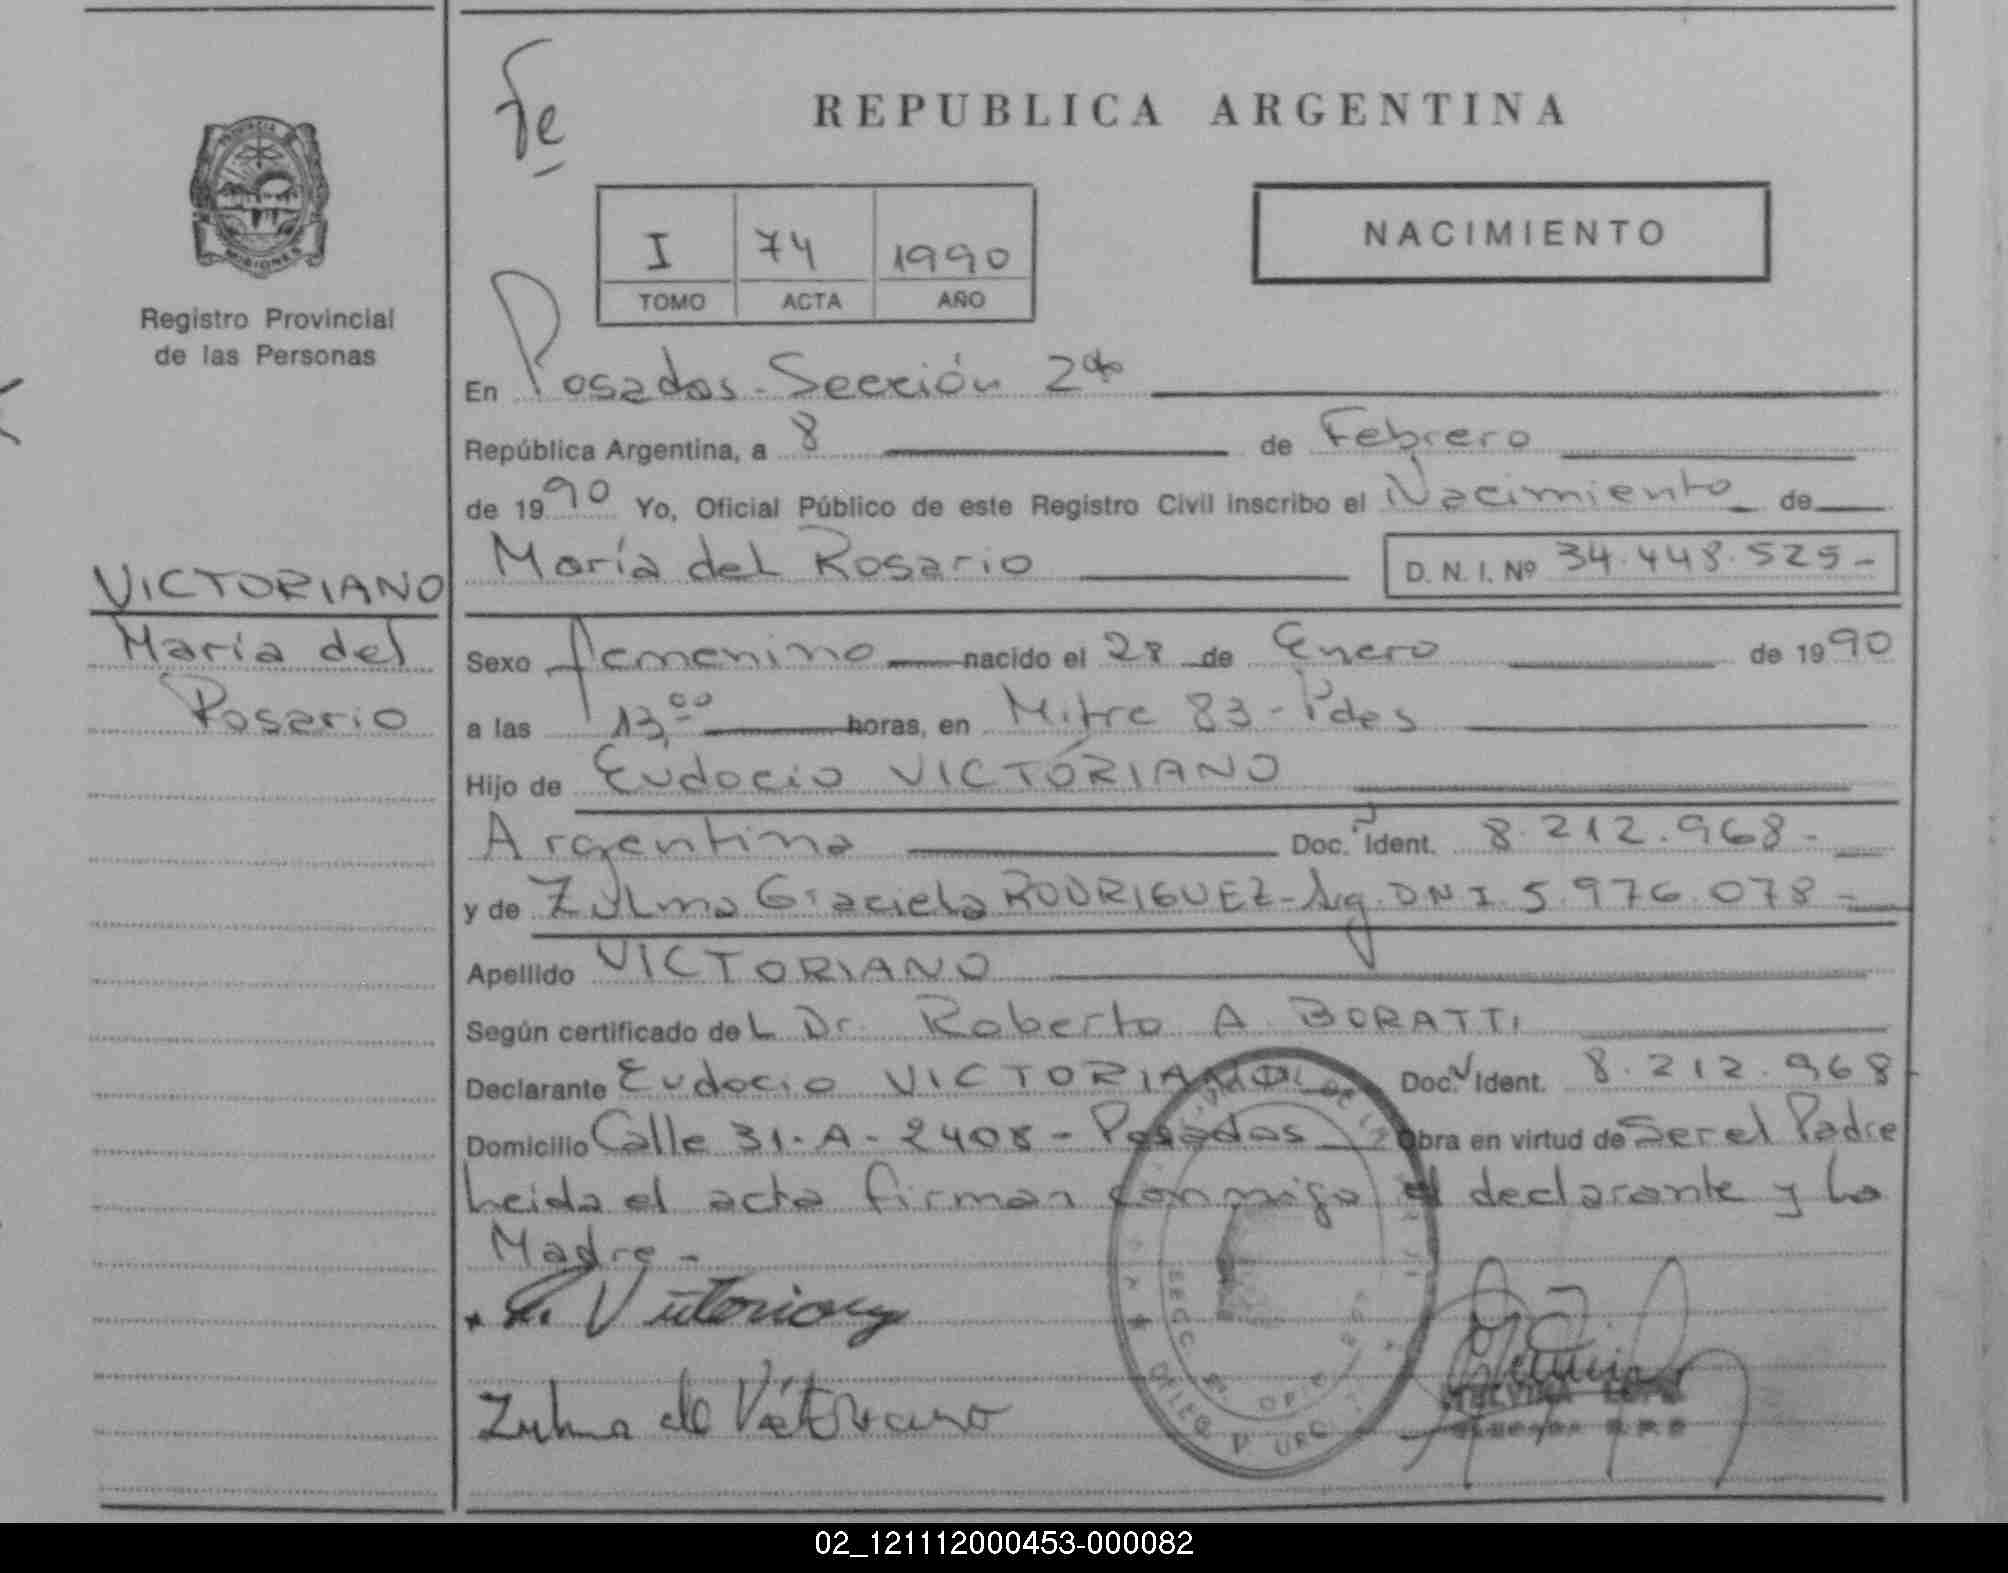 Fe
REPUBLICA ARGENTINA
PROVINCIA
MISIONES
Registro Provincial
de las Personas
I 74 1990
TOMO ACTA AÑO
NACIMIENTO
En Posadas - Sección 2da
República Argentina, a 8 de Febrero
de 1990 Yo, Oficial Público de este Registro Civil inscribo el Nacimiento de
María del Rosario D. N. I. Nº 34.448.525-
VICTORIANO
María del
Rosario
Sexo femenino nacido el 28 de Enero de 1990
a las 13,00 horas, en Mitre 83 - Pdas
Hijo de Eudocio VICTORIANO
Argentina Doc. Ident. 8.212.968-
y de Zulma Graciela RODRIGUEZ - Arg. DNI. 5.976.078-
Apellido VICTORIANO
Según certificado del Dr. Roberto A. BORATTI
Declarante Eudocio VICTORIANO Doc. Ident. 8.212.968
Domicilio Calle 31-A-2408 - Posadas Obra en virtud de Ser el Padre
Leida el acta firman conmigo el declarante y la
Madre -
Victoriano
Zulma de Victoriano
SECC
02_121112000453-000082